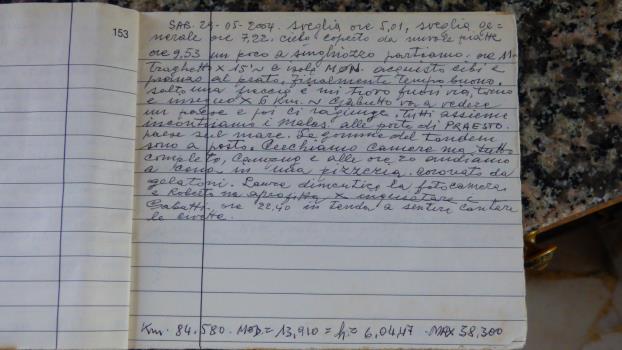 153
SAB. 29-05-2004. sveglia ore 5,01, sveglia ge=
nerale ore 7,22. cielo coperto da nuvole piatte
ore 9,53 un poco a singhiozzo partiamo. ore 11-
traghetto X 15'~ e isola MØN. acquisto cibi e
pranzo al prato, finalmente tempo buono,
salto una freccia e mi trovo fuori via, torno
e inseguo X 6 Km. ~ Gabutto va a vedere
un paese e poi ci raggiunge, tutti assieme
incontriamo i Molas. alle porte di PRAESTO.
paese sul mare. Le gomme del tandem
sono a posto. Cerchiamo camere ma tutto
completo, Camping e alle ore 20 andiamo
a cena in una pizzeria. governata da
gelatoni. Laura dimentica la fotocamera
e Roberta ne aprofitta X inquietare i
Gabutti. ore 22,40 in tenda a sentire cantare
le civette.
Km. 84.580. MED.= 13,910 = h.= 6,0447. MAX 38,300